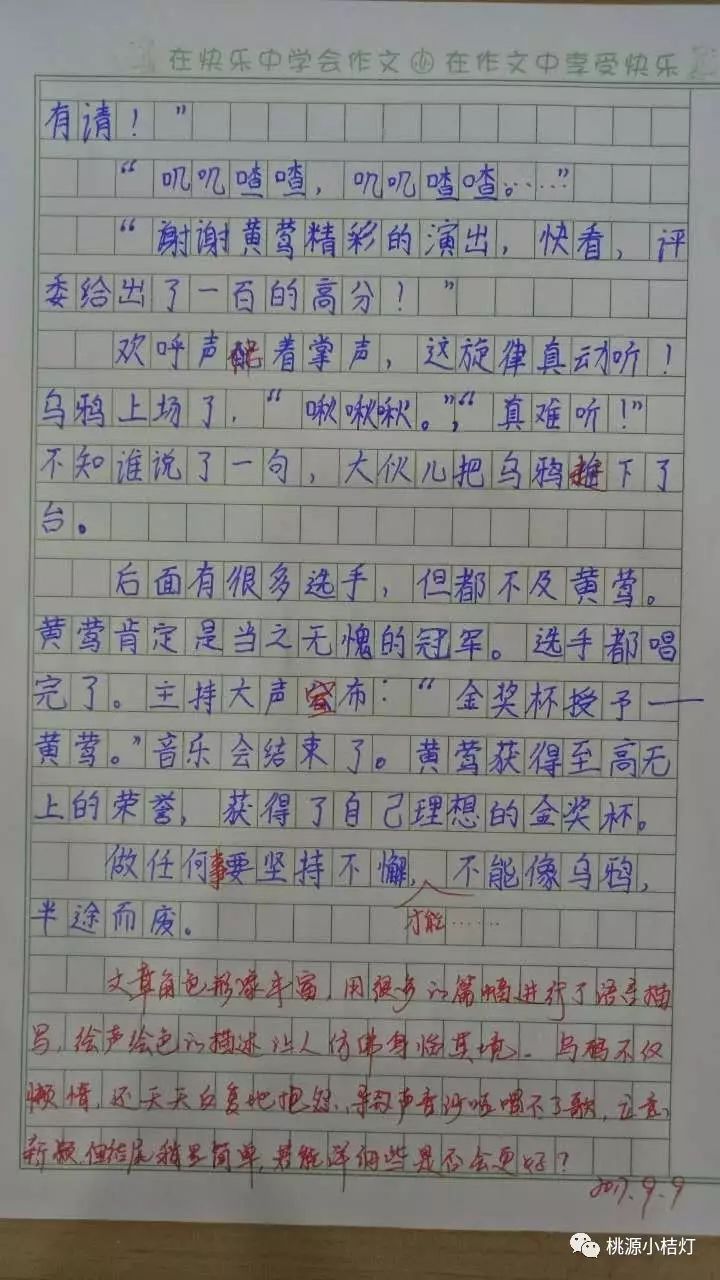 在快乐中学会作文 小 在作文中享受快乐
有请！”
“叽叽喳喳，叽叽喳喳。……”
“谢谢黄莺精彩的演出，快看，评
委给出了一百的高分！”
欢呼声配着掌声，这旋律真动听！
乌鸦上场了，“啾啾啾。”，“真难听！”
不知谁说了一句，大伙儿把乌鸦推下了
台。
后面有很多选手，但都不及黄莺。
黄莺肯定是当之无愧的冠军。选手都唱
完了。主持大声宣布：“金奖杯授予——
黄莺。”音乐会结束了。黄莺获得至高无
上的荣誉，获得了自己理想的金奖杯。
做任何事要坚持不懈，不能像乌鸦，
才能……
半途而废。
文章角色形象丰富，用很多的篇幅进行了语言描
写，绘声绘色的描述让人仿佛身临其境。乌鸦不仅
懒惰，还天天白复地抱怨，导致声音沙哑唱不了歌，立意
新颖，但结尾稍显简单，若能详细些是否会更好？
2017.9.9
桃源小桔灯